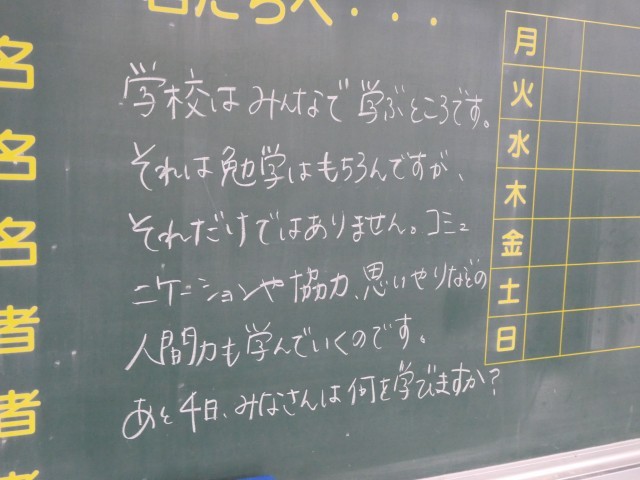 君たちへ・・・
学校はみんなで学ぶところです。
それは勉学はもちろんですが、
それだけではありません。コミュ
ニケーションや協力、思いやりなどの
人間力も学んでいくのです。
あと4日、みなさんは何を学びますか?
名
名
名
者
者
月
火
水
木
金
土
日